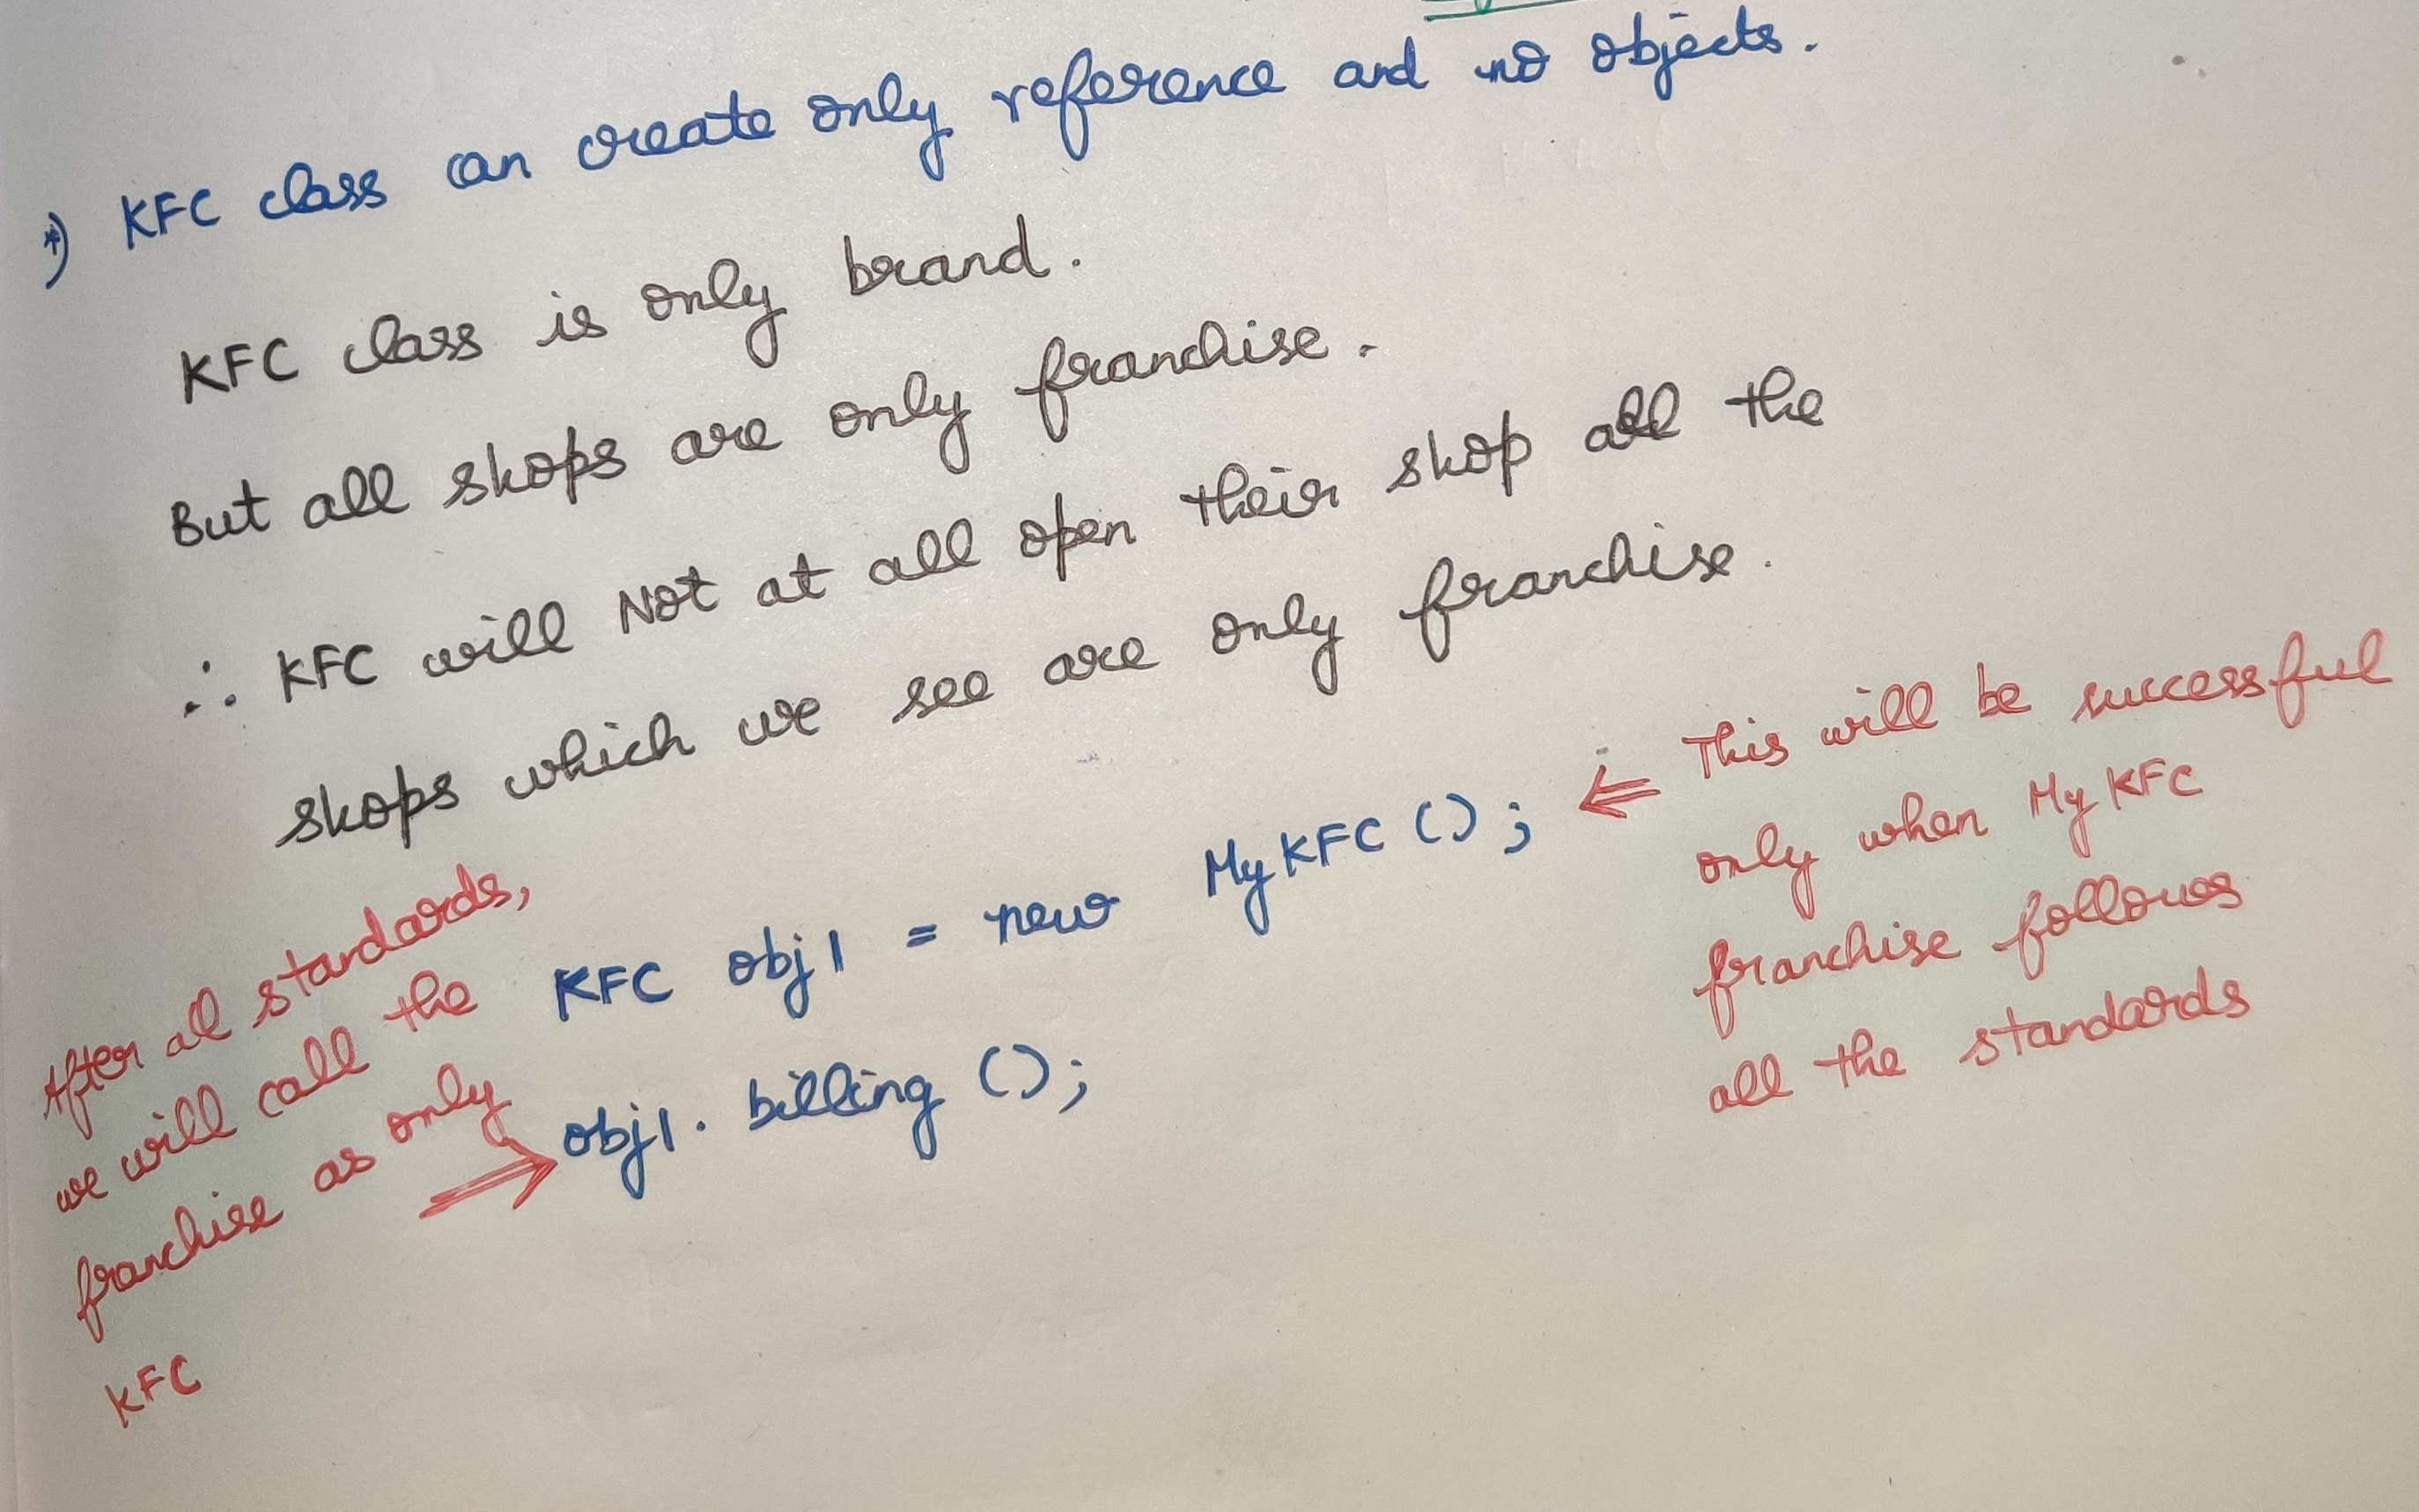 *) KFC class can create only reference and no objects.
KFC class is only brand.
But all shops are only franchise.
∴ KFC will Not at all open their shop all the
shops which we see are only franchise.
KFC obj1 = new MyKFC ();
⇐ This will be successful
only when MyKFC
franchise follows
all the standards
After all standards,
we will call the
franchise as only
KFC
⇒ obj1. billing ();